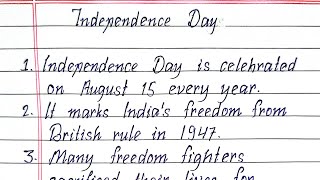 Independence Day
1. Independence Day is celebrated
on August 15 every year.
2. It marks India's freedom from
British rule in 1947.
3. Many freedom fighters
sacrificed their lives for